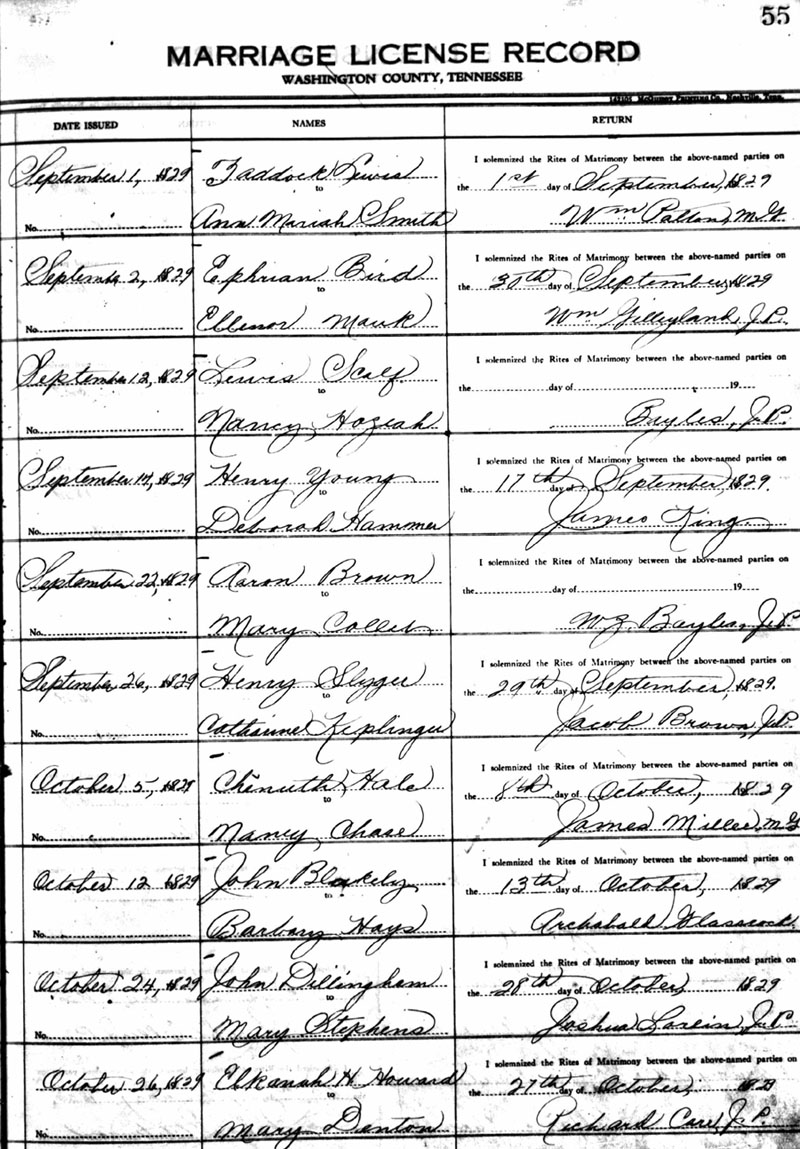 55
MARRIAGE LICENSE RECORD
WASHINGTON COUNTY, TENNESSEE
McQuiddy Printing Co., Nashville, Tenn.
DATE ISSUED NAMES RETURN
I solemnized the Rites of Matrimony between the above-named parties on
September 1, 1829 Zaddock Lewis the 1st day of September, 1829
to
No. Ann Mariah Smith Wm Patton, M.G.
I solemnized the Rites of Matrimony between the above-named parties on
September 2, 1829 Ephrian Bird the 30th day of September, 1829
to
No. Ellenor Mauk Wm Gilleyland, J.P.
I solemnized the Rites of Matrimony between the above-named parties on
September 12, 1829 Lewis Scalf the day of 19
to
No. Nancy Hoziah Bayles, J.P.
I solemnized the Rites of Matrimony between the above-named parties on
September 14, 1829 Henry Young the 17th day of September, 1829.
to
No. Deborah Hammer James King
I solemnized the Rites of Matrimony between the above-named parties on
September 22, 1829 Aaron Brown the day of 19
to
No. Mary Collet Bayles, J.P.
I solemnized the Rites of Matrimony between the above-named parties on
September 26, 1829 Henry Slyger the 29th day of September, 1829.
to
No. Catharine Keplinger Jacob Brown, J.P.
I solemnized the Rites of Matrimony between the above-named parties on
October 5, 1829 Chenuth Hale the 8th day of October, 1829
to
No. Nancy Chase James Miller, M.G
I solemnized the Rites of Matrimony between the above-named parties on
October 12 1829 John Blakely the 13th day of October, 1829
to
No. Barbary Hays Archabald Glasscock
I solemnized the Rites of Matrimony between the above-named parties on
October 24, 1829 John Dillingham the 28th day of October, 1829
to
No. Mary Stephens Joshua J.P.
I solemnized the Rites of Matrimony between the above-named parties on
October 26, 1829 Elkanah H. Howard the 27th day of October, 1829
to
No. Mary Denton Richard Carr, J.P.